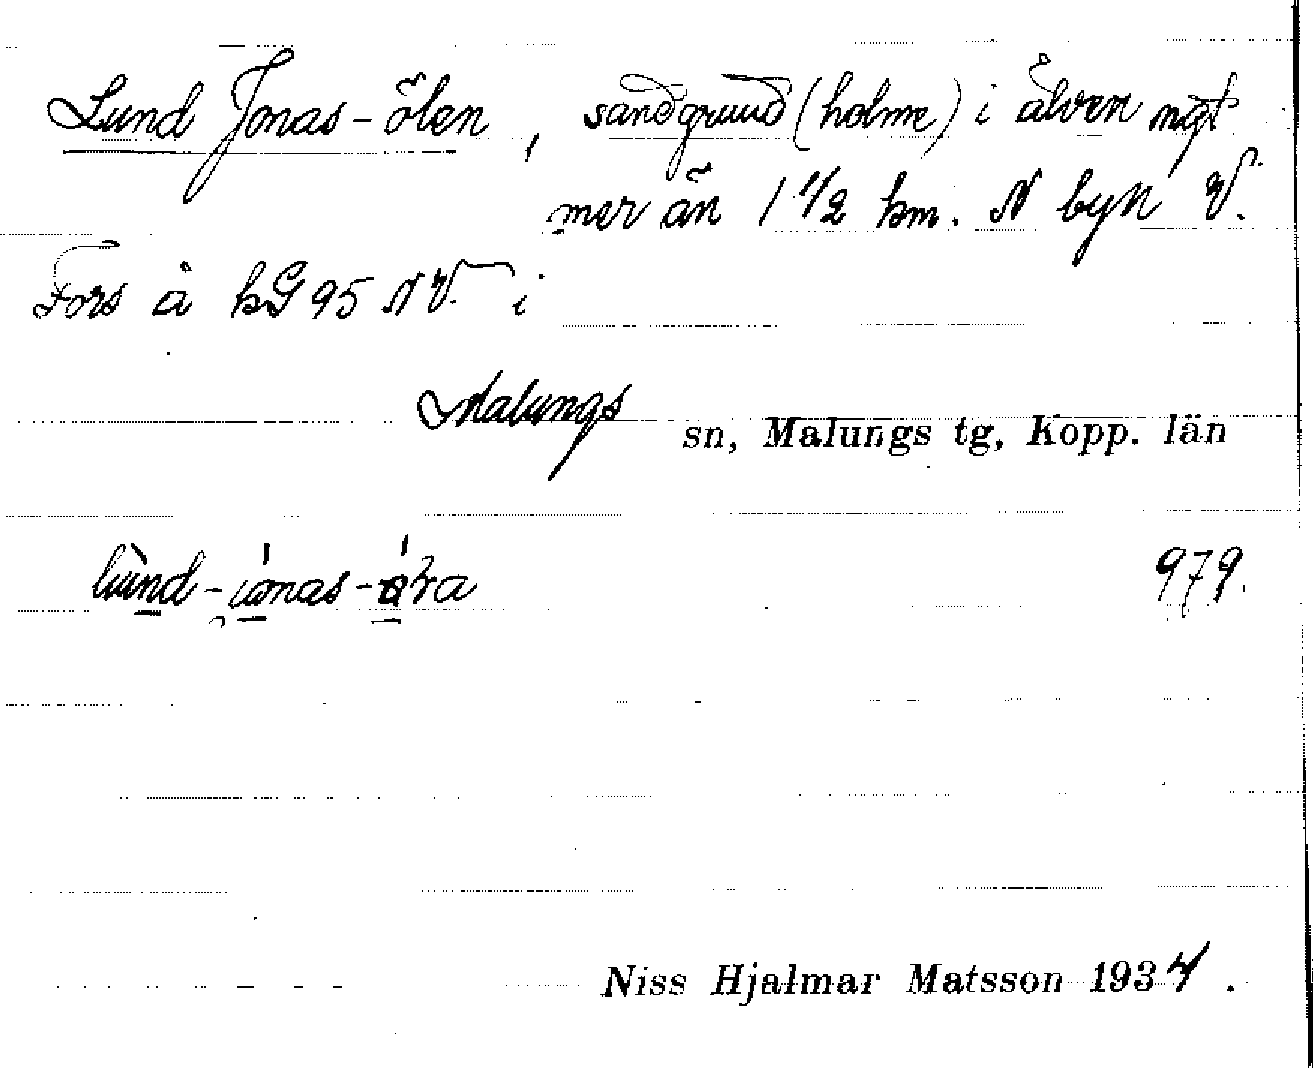 Lund Jonas-ölen, sandgrund (holme) i älven ngt
mer än 1 1/2 km. N byn V.
Fors å kG 95 NV i
Malungs sn, Malungs tg, Kopp. län
979.
Niss Hjalmar Matsson 1934.